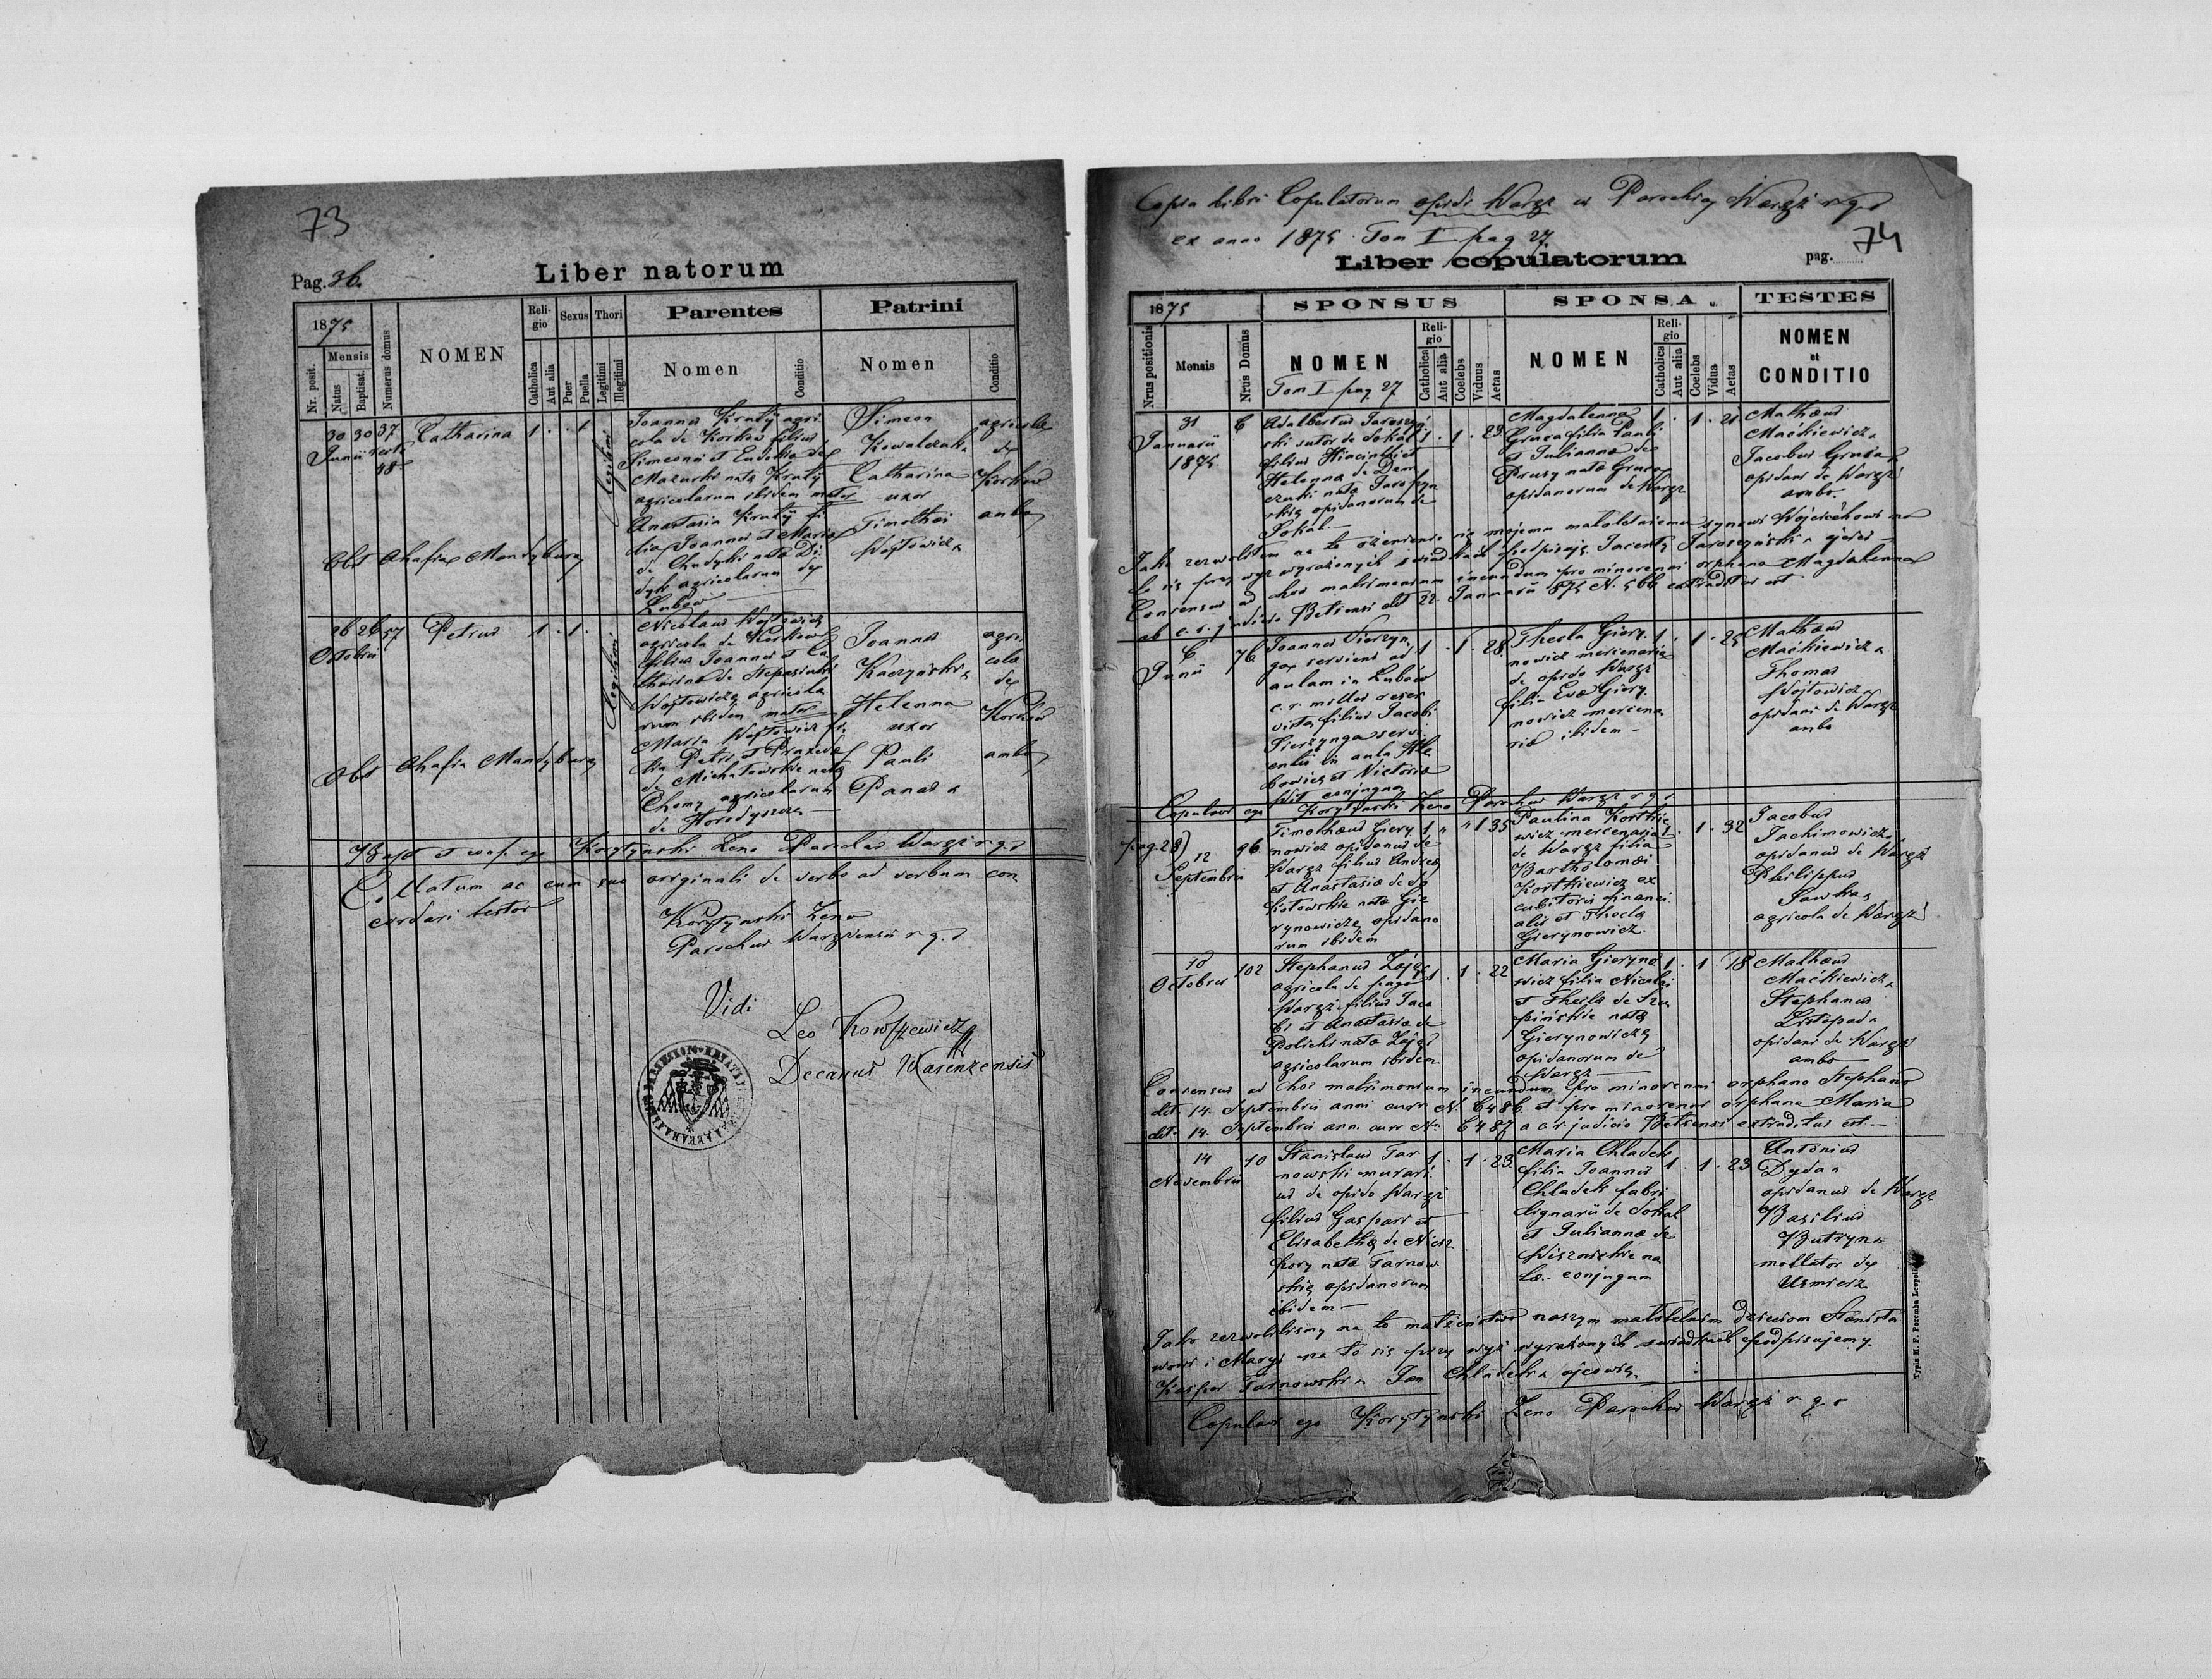 73
Pag. 36.
Liber natorum
1875
Nr. posit.
Mensis
Natus
Baptisat.
Numerus domus
NOMEN
Religio
Catholica
Aut alia
Sexus
Puer
Puella
Thori
Legitimi
Illegitimi
Parentes
Nomen
Conditio
Patrini
Nomen
Conditio
30 30 37
Junii
48
Catharina 1 . . 1
Legitimi
Joannes Krutÿ agri
cola de Korków filius
Simeonis et Eudokia de
Mazurki nata Krutÿ
agricolarum ibidem mater
Anastasia Krutÿ fi
lia Joannis et Maria
de Chudyki nata Di
dyk agricolarum de
Łubów
Simeon
Kowalczuk
Catharina
uxor
Timothei
Wojtowicz
agricola
de
Korków
ambo
Obst Ahafia Mandyburg
26 26 57
Octobris
Petrus 1 . 1 .
Legitimi
Nicolaus Wojtowicz
agricola de Korków
filius Joannis et Ca
tharina de Stepasiuki
Wojtowicz agricola
rum ibidem mater
Maria Wojtowicz fi
lia Petri et Praxeda
de Michałowskie nata
Chomy agricolarum
de Horodyszcze
Joannes
Kaczyński
Helenna
uxor
Pauli
Panas
agri
cola
de
Korków
ambo
Obst Ahafia Mandyburg
Bapt et conf. ego Korytyński Zeno Parochus Waręż r. g. s
Collatum ac cum suo originali de verbo ad verbum con
cordari testor
Korytynski Zeno
Parochus Warężensis r. g. s
Vidi
Leo
Decanus Warenzensis
Copia libri Copulatorum opidi Waręż in Parochia Waręż r. g. s
ex anno 1875 Tom I pag 27.
74
Liber copulatorum
pag.
1875
Nrus positionis
Mensis
Nrus Domus
SPONSUS
NOMEN
Tom I pag 27
Religio
Catholica
Aut alia
Coelebs
Viduus
Aetas
SPONSA
NOMEN
Religio
Catholica
Aut alia
Coelebs
Vidua
Aetas
TESTES
NOMEN
et
CONDITIO
31
Januarii
1875.
6
Adalbertus Jaroszyń
ski sutor de Sokal
filius Hiacinthi et
Helenna de Dem
czuki nata Jaroszyn
skie opidanorum de
Sokal.
1 . 1 . 23
Magdalenna
Gruca filia Pauli
et Julianna de
Pruzy nata Gruca
opidanorum de Waręż
1 . 1 . 21
Mathaeus
Maćkiewicz
Jacobus Gruca
opidani de Waręż
ambo.
Jako zezwoliłem na te ożenienie się mojemu małoletniemu synowi Wojciechowi na
to się przy wyż wyrażonych świadkach podpisuję. Jacenty Jaroszyński ojciec
Consensus ad hoc matrimonium ineundum pro minorenni orphana Magdalenna
ab c. r. judicio Belzensi ddt 22. Januarii 875 N. 566 extraditus est.
6
Junii
76
Joannes Sierzyn
ga serviens ad
aulam in Łubów
c. r. miles reser
vista filius Jacobi
Sierzynga servi
entis in aula Chle
bowice et Victoria
Wit conjugum
1 . 1 . 28
Thecla Giery
nowicz mercenaria
de opido Waręż
filia Eva Giery
nowicz mercena
ria ibidem
1 . 1 . 25
Mathaeus
Maćkiewicz
Thomas
Wojtowicz
opidani de Waręż
ambo
Copulavi ego Korytyński Zeno Parochus Waręż r. g. s
pag. 28)
12
Septembris
96.
Timothaeus Giery
nowicz opidanus de
Waręż filius Andrea
et Anastasia de So
kołowskie nata Gie
rynowicz opidano
rum ibidem
1 . . 1 35
Paulina Kostkie
wicz mercenaria
de Waręż filia
Bartholomaei
Kostkiewicz ex
cubitoris financi
alis et Thecla
Gierynowicz.
1 . 1 . 32
Jacobus
Jachimowicz
opidanus de Waręż
Philippus
Sawka
agricola de Waręż
10
Octobris
102
Stephanus Zając
agricola de pago
Waręż filius Jaco
bi et Anastasia de
Policki nata Zając
agricolarum ibidem
1 . 1 . 22
Maria Gieryno
wicz filia Nicolai
et Thecla de Szu
pińskie nata
Gierynowicz
opidanorum de
Waręż
1 . 1 18
Mathaeus
Maćkiewicz
Stephanus
Listopad
opidani de Waręż
ambo
Consensus ad hoc matrimonium ineundum pro minorenni orphano Stephano
ddt. 14. Septembris anni curr N. 6486 et pro minorenni orphana Maria
ddt. 14. Septembris ann. curr N. 6487 a c.r. judicio Belzensi extraditus est.
14
Novembris
10
Stanislaus Tar
nowski murari
us de opido Waręż
filius Gaspari et
Elisabetha de Niesz
pory nata Tarnow
skie opidanorum
ibidem
1 . 1 . 23.
Maria Chladek
filia Joannis
Chladek fabri
lignarii de Sokal
et Julianna de
Wiszniskie na
ta. conjugum
1 . 1 . 23
Antonius
Dyda
opidanus de Waręż
Basilius
Butryn
molitor de
Uśmierz
Jako zezwoliliśmy na to małżeństwo naszym małoletnim dzieciom Stanisła
wowi i Maryi na to się przy wyż wyrażonych świadkach podpisujemy.
Kasper Tarnowski Jan Chladek ojcowie.
Copulavi ego Korytynski Zeno Parochus Waręż r g s
Typis H. F. Poremba Leopoli